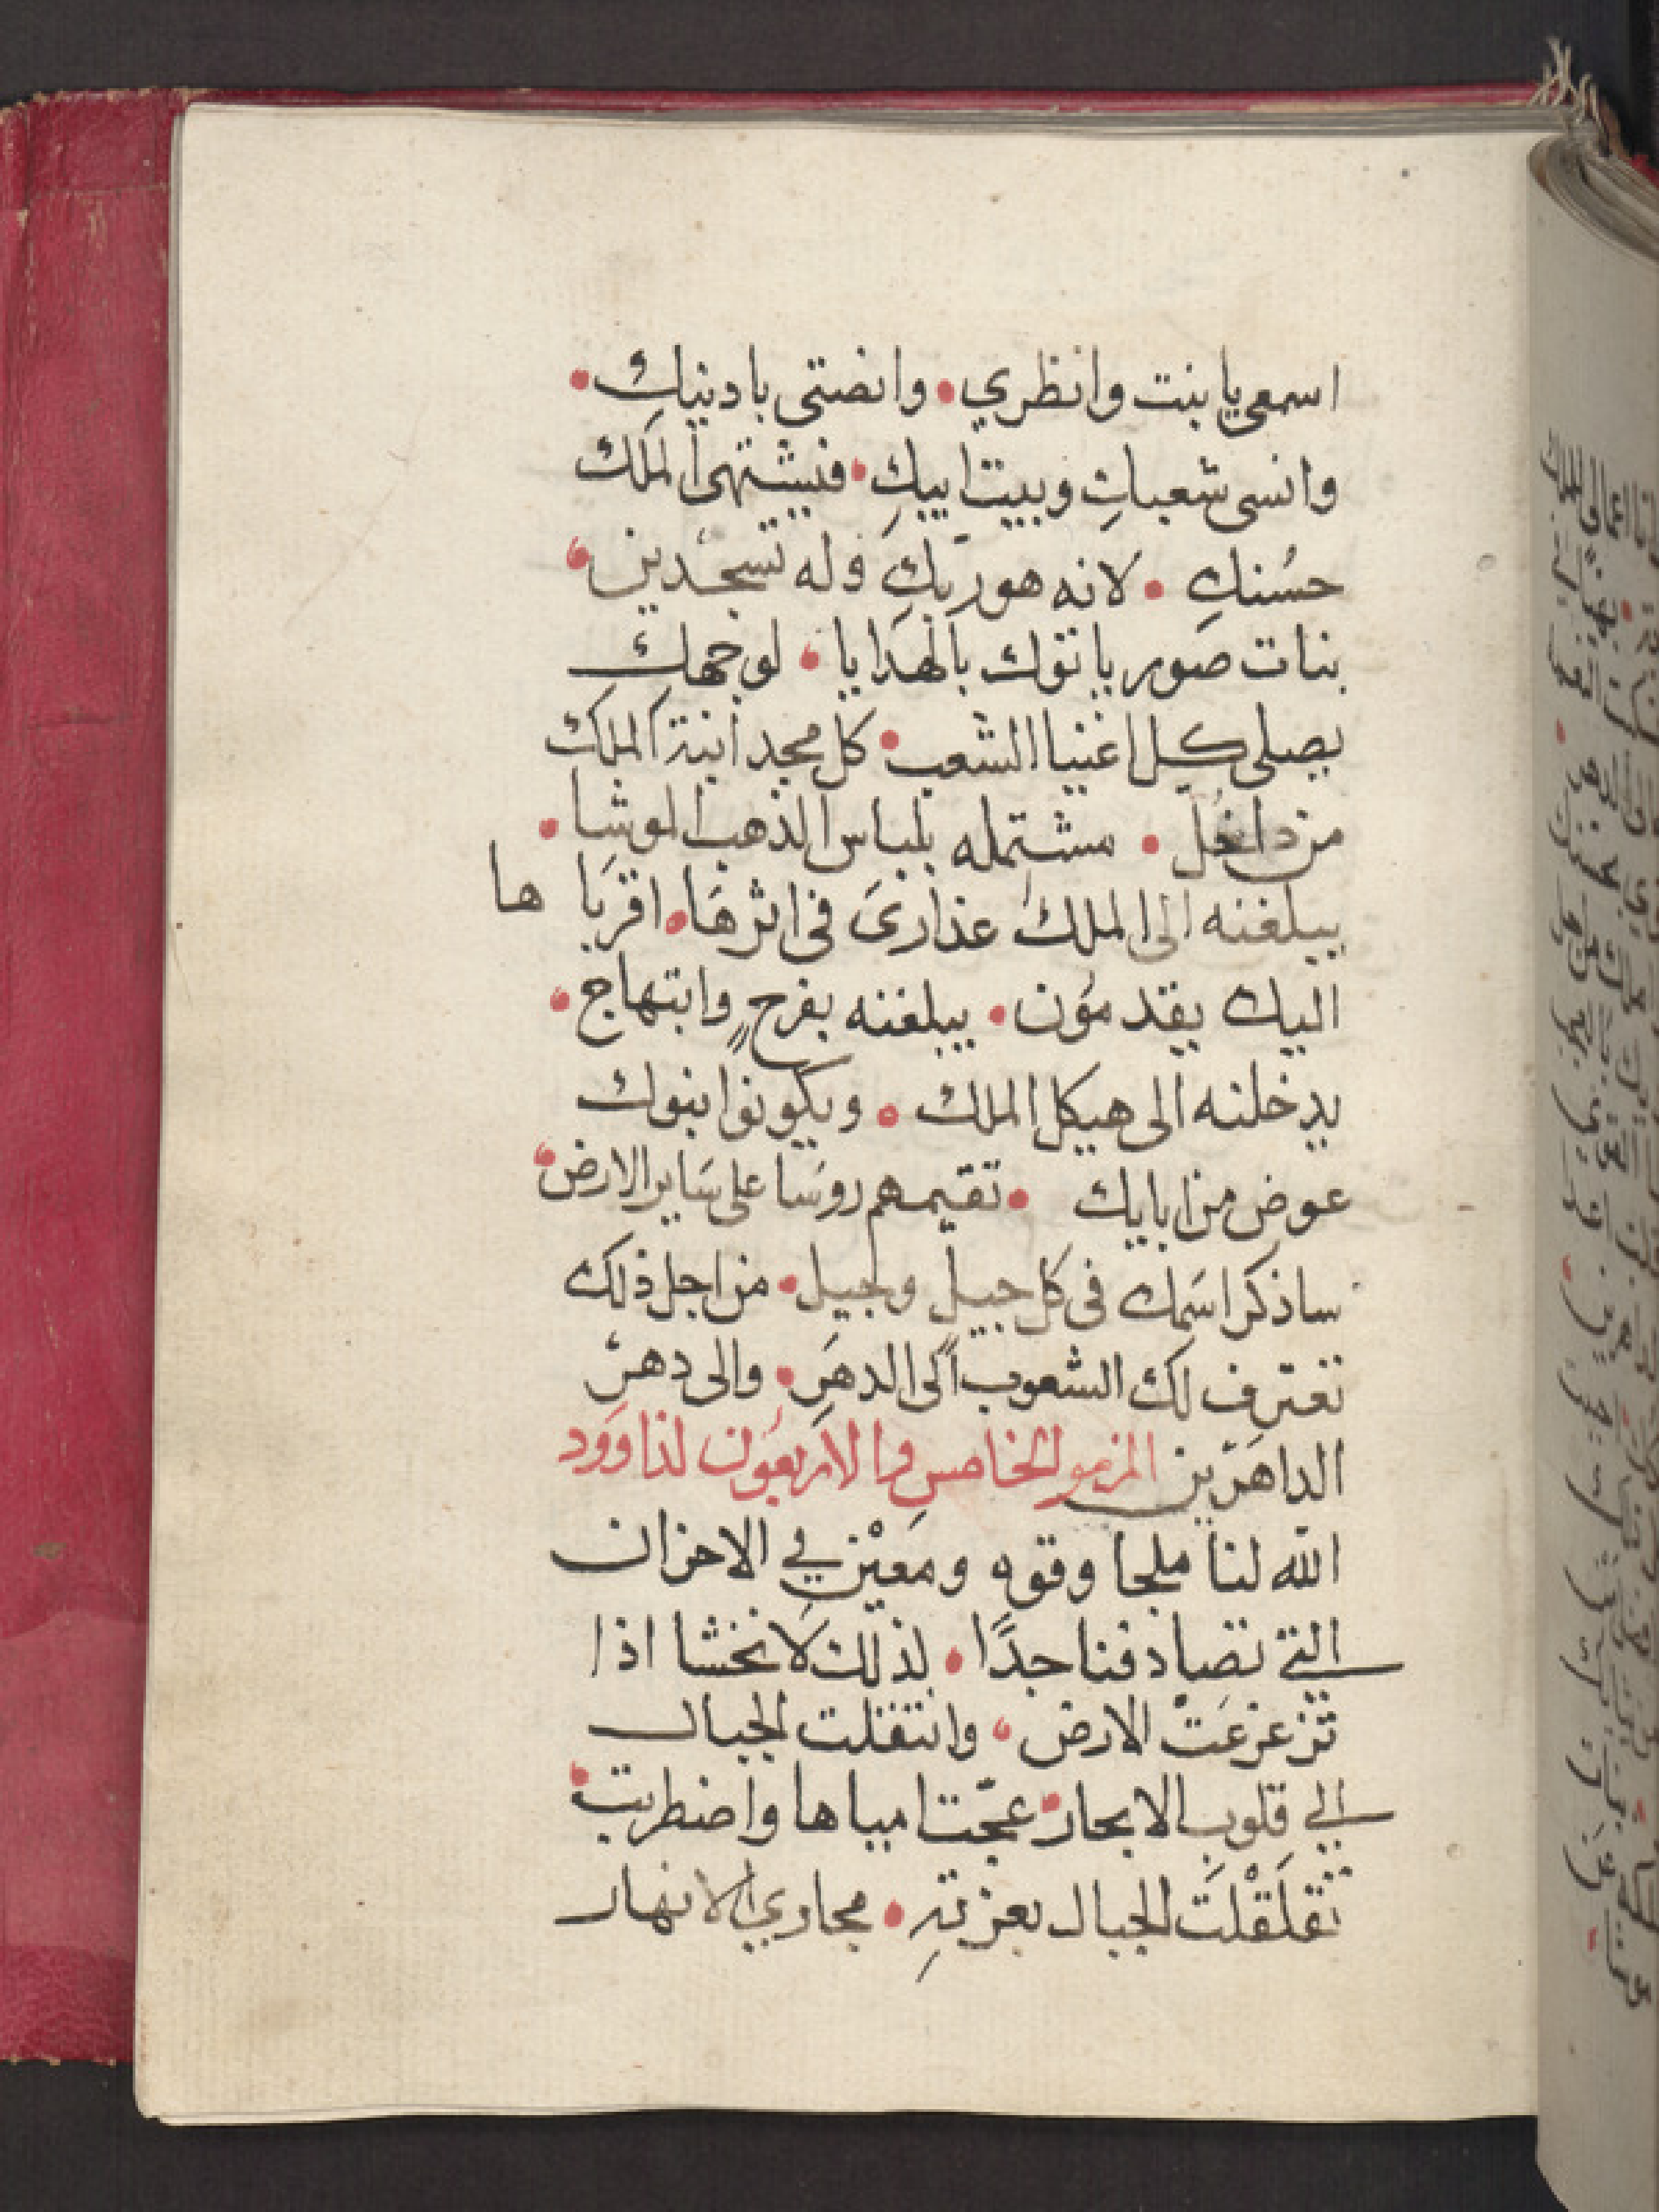 اسمعي يا بنت وانظري • وانصتى بادنيكِ •
وانسى شعبكِ وبيت ابيكِ • فيشتهى الملك
حسُنكِ • لانه هو ربكِ وله تسجدين •
بنات صور ياتوك بالهدايا • لوجهكِ
يصلى كل اغنيا الشعب • كل مجد ابنة الملك
من داخل • مشتمله بلباس الذهب الموشا •
يبلغنه الى الملك عذارى فى اثرها • اقربا ها
اليك يقدمون • يبلغنه بفرحٍ وابتهاج •
يدخلنه الى هيكل الملك • ويكونوا بنوك
عوض من ابايك • تقيمهم روسا على ساير الارض •
ساذكر اسمك فى كل جيل وجيل • من اجل ذلك
تعترف لك الشعوب الى الدهر • والى دهر
الداهرين المزمور الخامس والاربعون لداوود
الله لنا ملجا وقوه ومعين في الاحزان
التي تصادفنا جدًا • لذلك لا نخشا اذا
تزعزعت الارض • وانتقلت الجبال
الي قلوب الابحار • عجّت امياها واضطربت •
تقلقلت الجبال بعزتهِ • مجاري الانهار